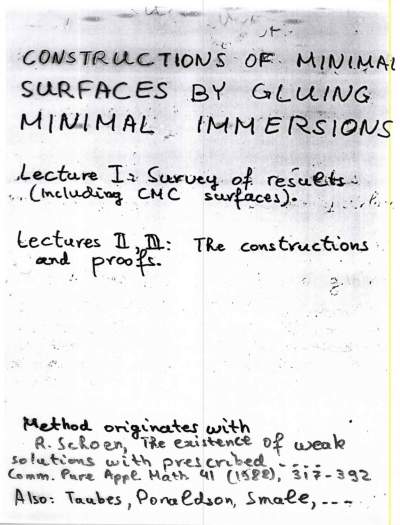 CONSTRUCTIONS OF MINIMAL
SURFACES BY GLUING
MINIMAL IMMERSIONS
Lecture I: Survey of results
(Including CMC surfaces).
Lectures II, III: The constructions
and proofs.
Method originates with
R. Schoen, The existence of weak
solutions with prescribed ....
Comm. Pure Appl. Math 41 (1988), 317-392
Also: Taubes, Donaldson, Smale, ---